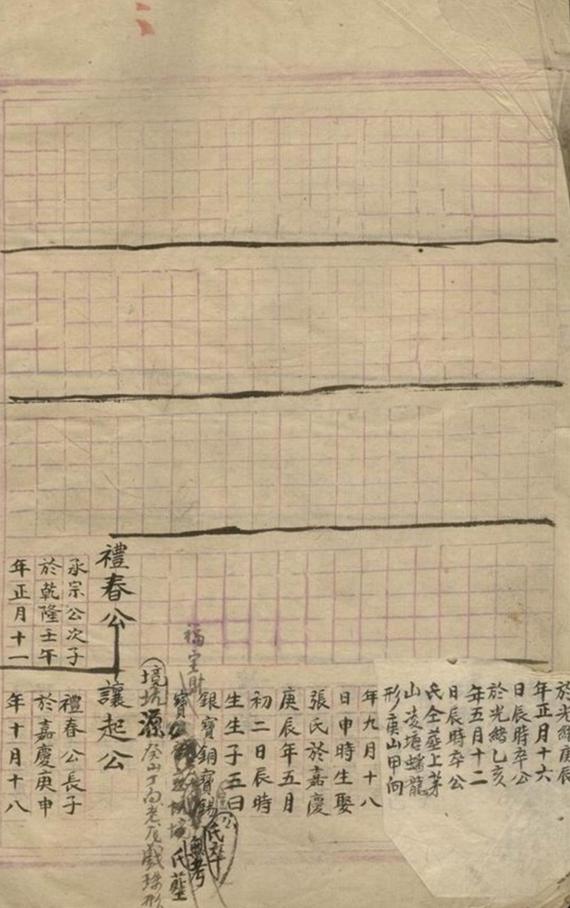 禮春公
承宗公次子
於乾隆壬午
年正月十一
於光緒庚辰
年正月十六
日辰時卒公
於光緒乙亥
年五月十二
日辰時卒公
氏仝塟上茅
山凌塘蟠龍
形庚山甲向
年九月十八
日申時生娶
張氏於嘉慶
庚辰年五月
初二日辰時
生生子五曰
銀寶銅寶錫
氏卒
無考
福寶財
寶
氏塟
境坑源癸山丁向
讓起公
禮春公長子
於嘉慶庚申
年十月十八